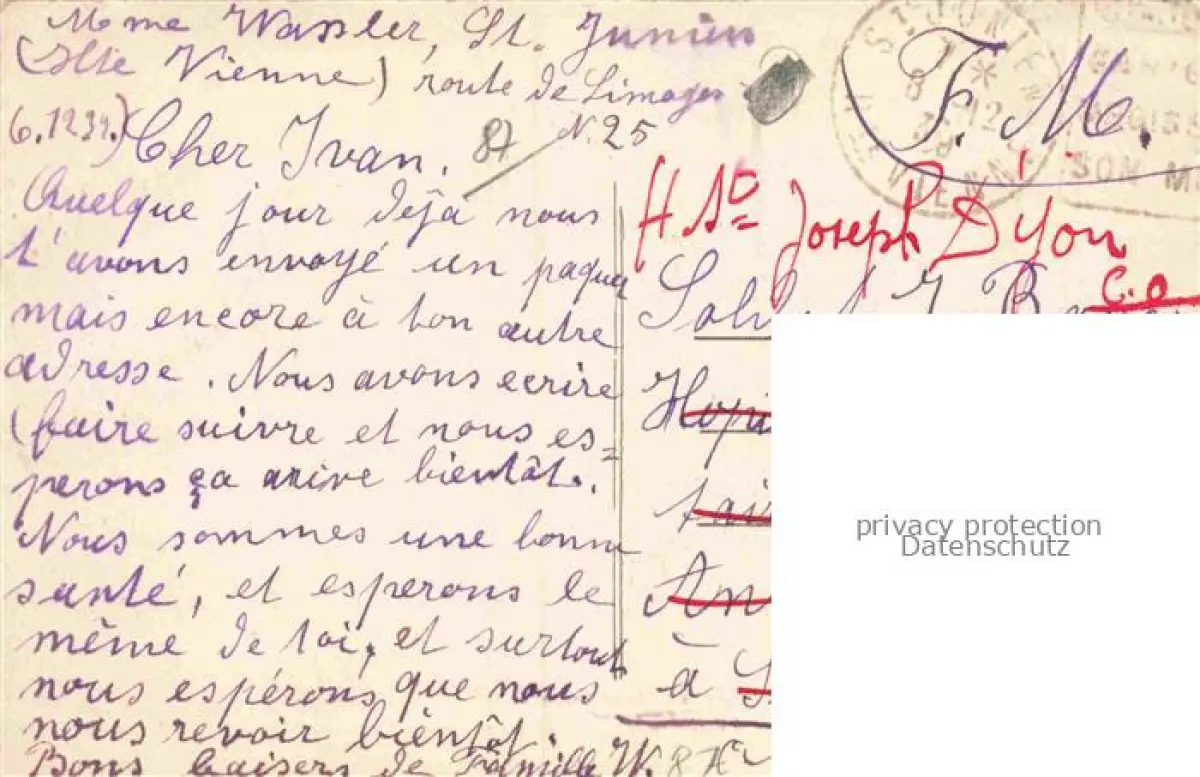 Mme Wassler, St. Junien
(Hte Vienne) route de Limoges
N. 25
6.12.39.) Cher Ivan.
87
Quelque jour dejà nous
t'avons envoyé un paquet
mais encore à ton autre
adresse. Nous avons ecrire
(faire suivre et nous es=
perons ça arive bientôt.
Nous sommes une bonne
santé, et esperons le
même de toi, et surtout
nous espérons que nous
nous revoir bientôt.
Bons baisers de Famille W.
F. M.
St JUNIEN
Hl St= Joseph Dijon
C.O
Hopi
An
à S
privacy protection
Datenschutz